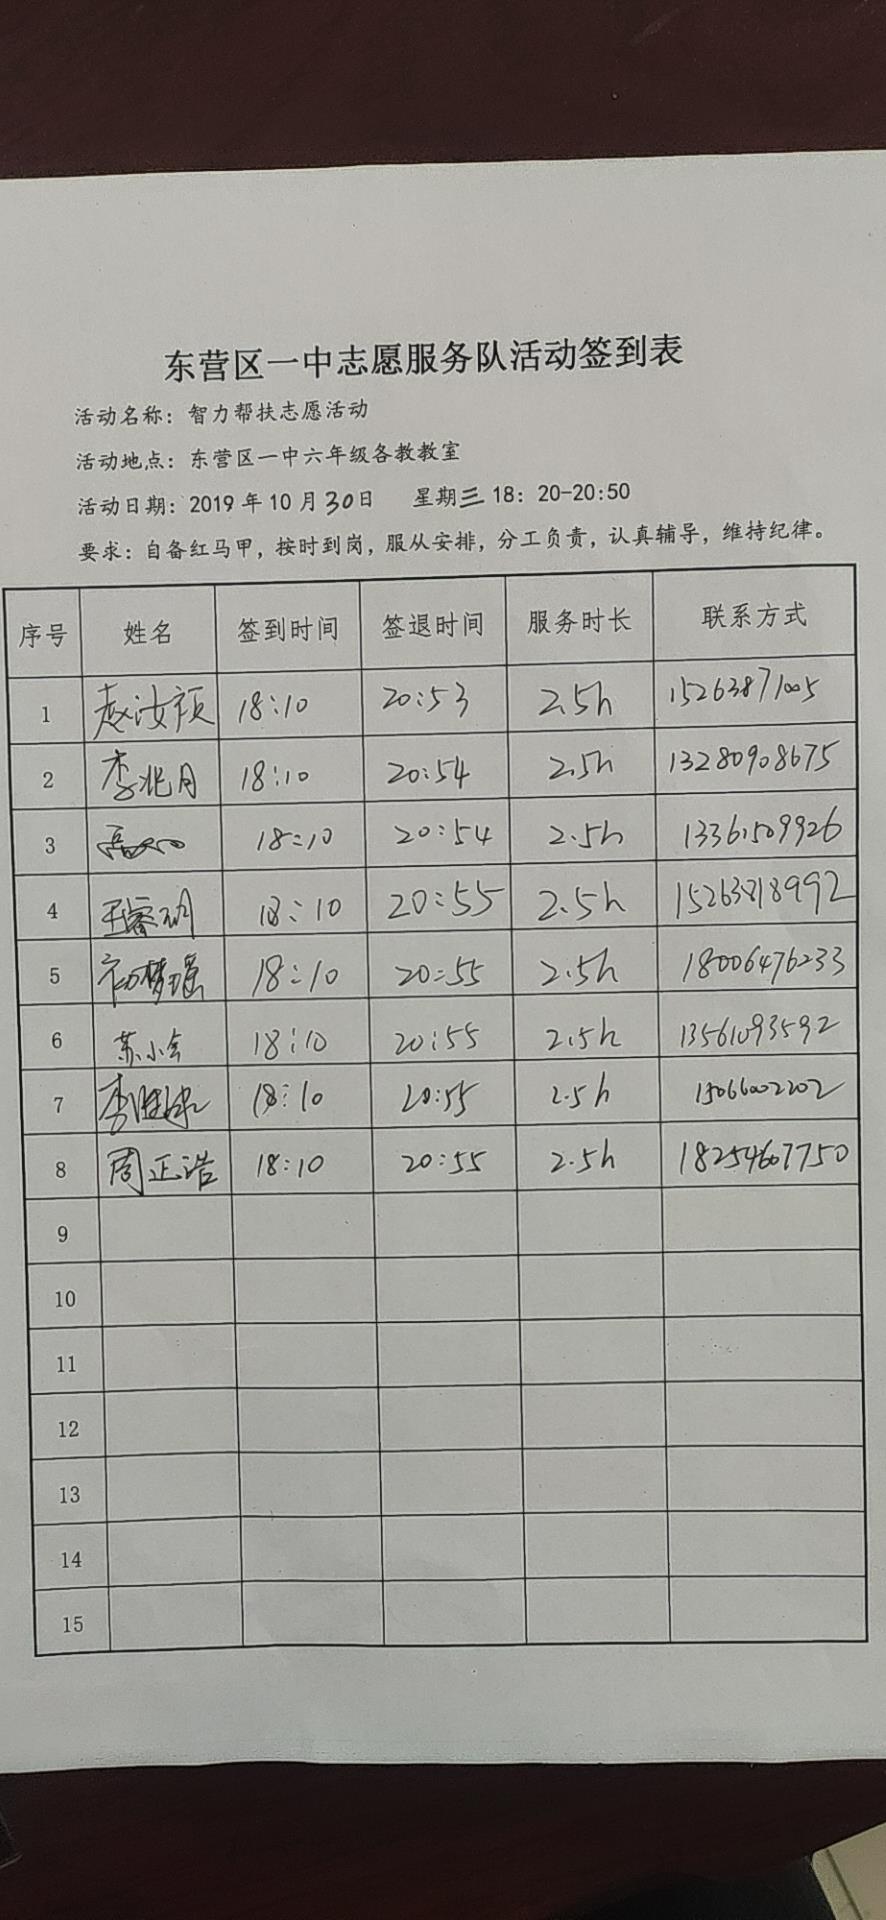 东营区一中志愿服务队活动签到表
活动名称：智力帮扶志愿活动
活动地点：东营区一中六年级各教教室
活动日期：2019年10月30日 星期三 18：20-20:50
要求：自备红马甲，按时到岗，服从安排，分工负责，认真辅导，维持纪律。
序号 姓名 签到时间 签退时间 服务时长 联系方式
1 赵汝颖 18:10 20:53 2.5h 15263871005
2 李兆月 18:10 20:54 2.5h 13280908675
3 18:10 20:54 2.5h 13361509926
4 18:10 20:55 2.5h 15263818992
5 初梦瑶 18:10 20:55 2.5h 18006476233
6 苏小会 18:10 20:55 2.5h 13561093592
7 18:10 20:55 2.5h 15066002202
8 周正浩 18:10 20:55 2.5h 18254607750
9
10
11
12
13
14
15